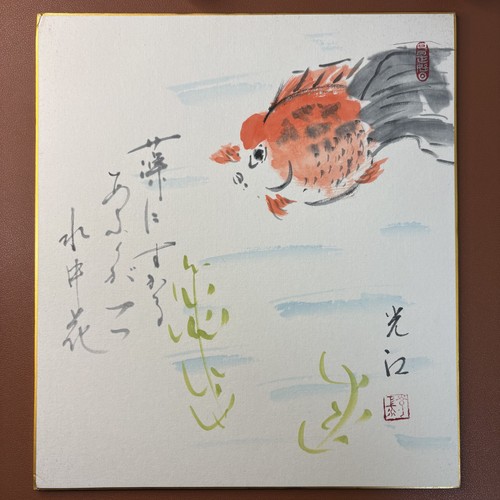 藻にすがる
あぶくが一つ
水中花
光江